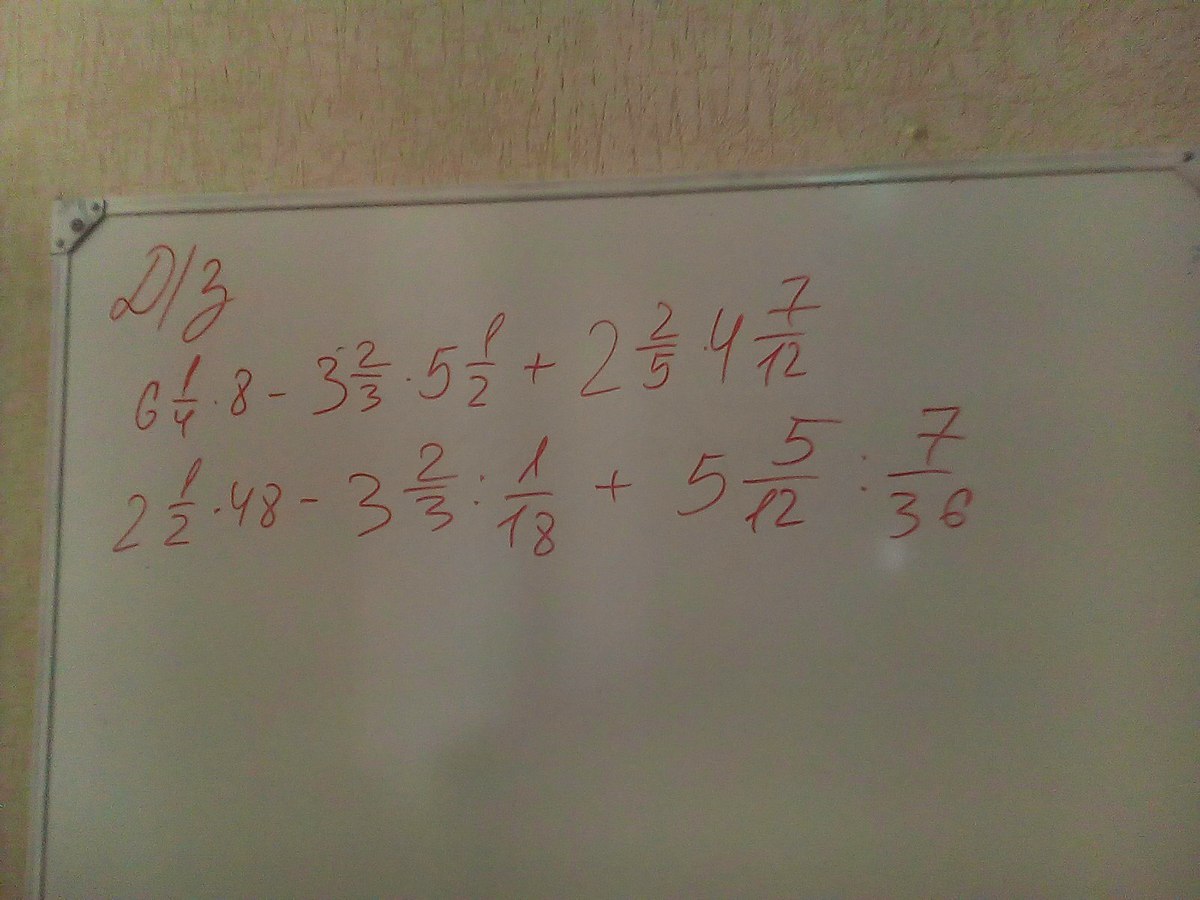 Д/з
6 1/4 · 8 - 3 2/3 · 5 1/2 + 2 2/5 · 4 7/12
2 1/2 · 48 - 3 2/3 : 1/18 + 5 5/12 : 7/36